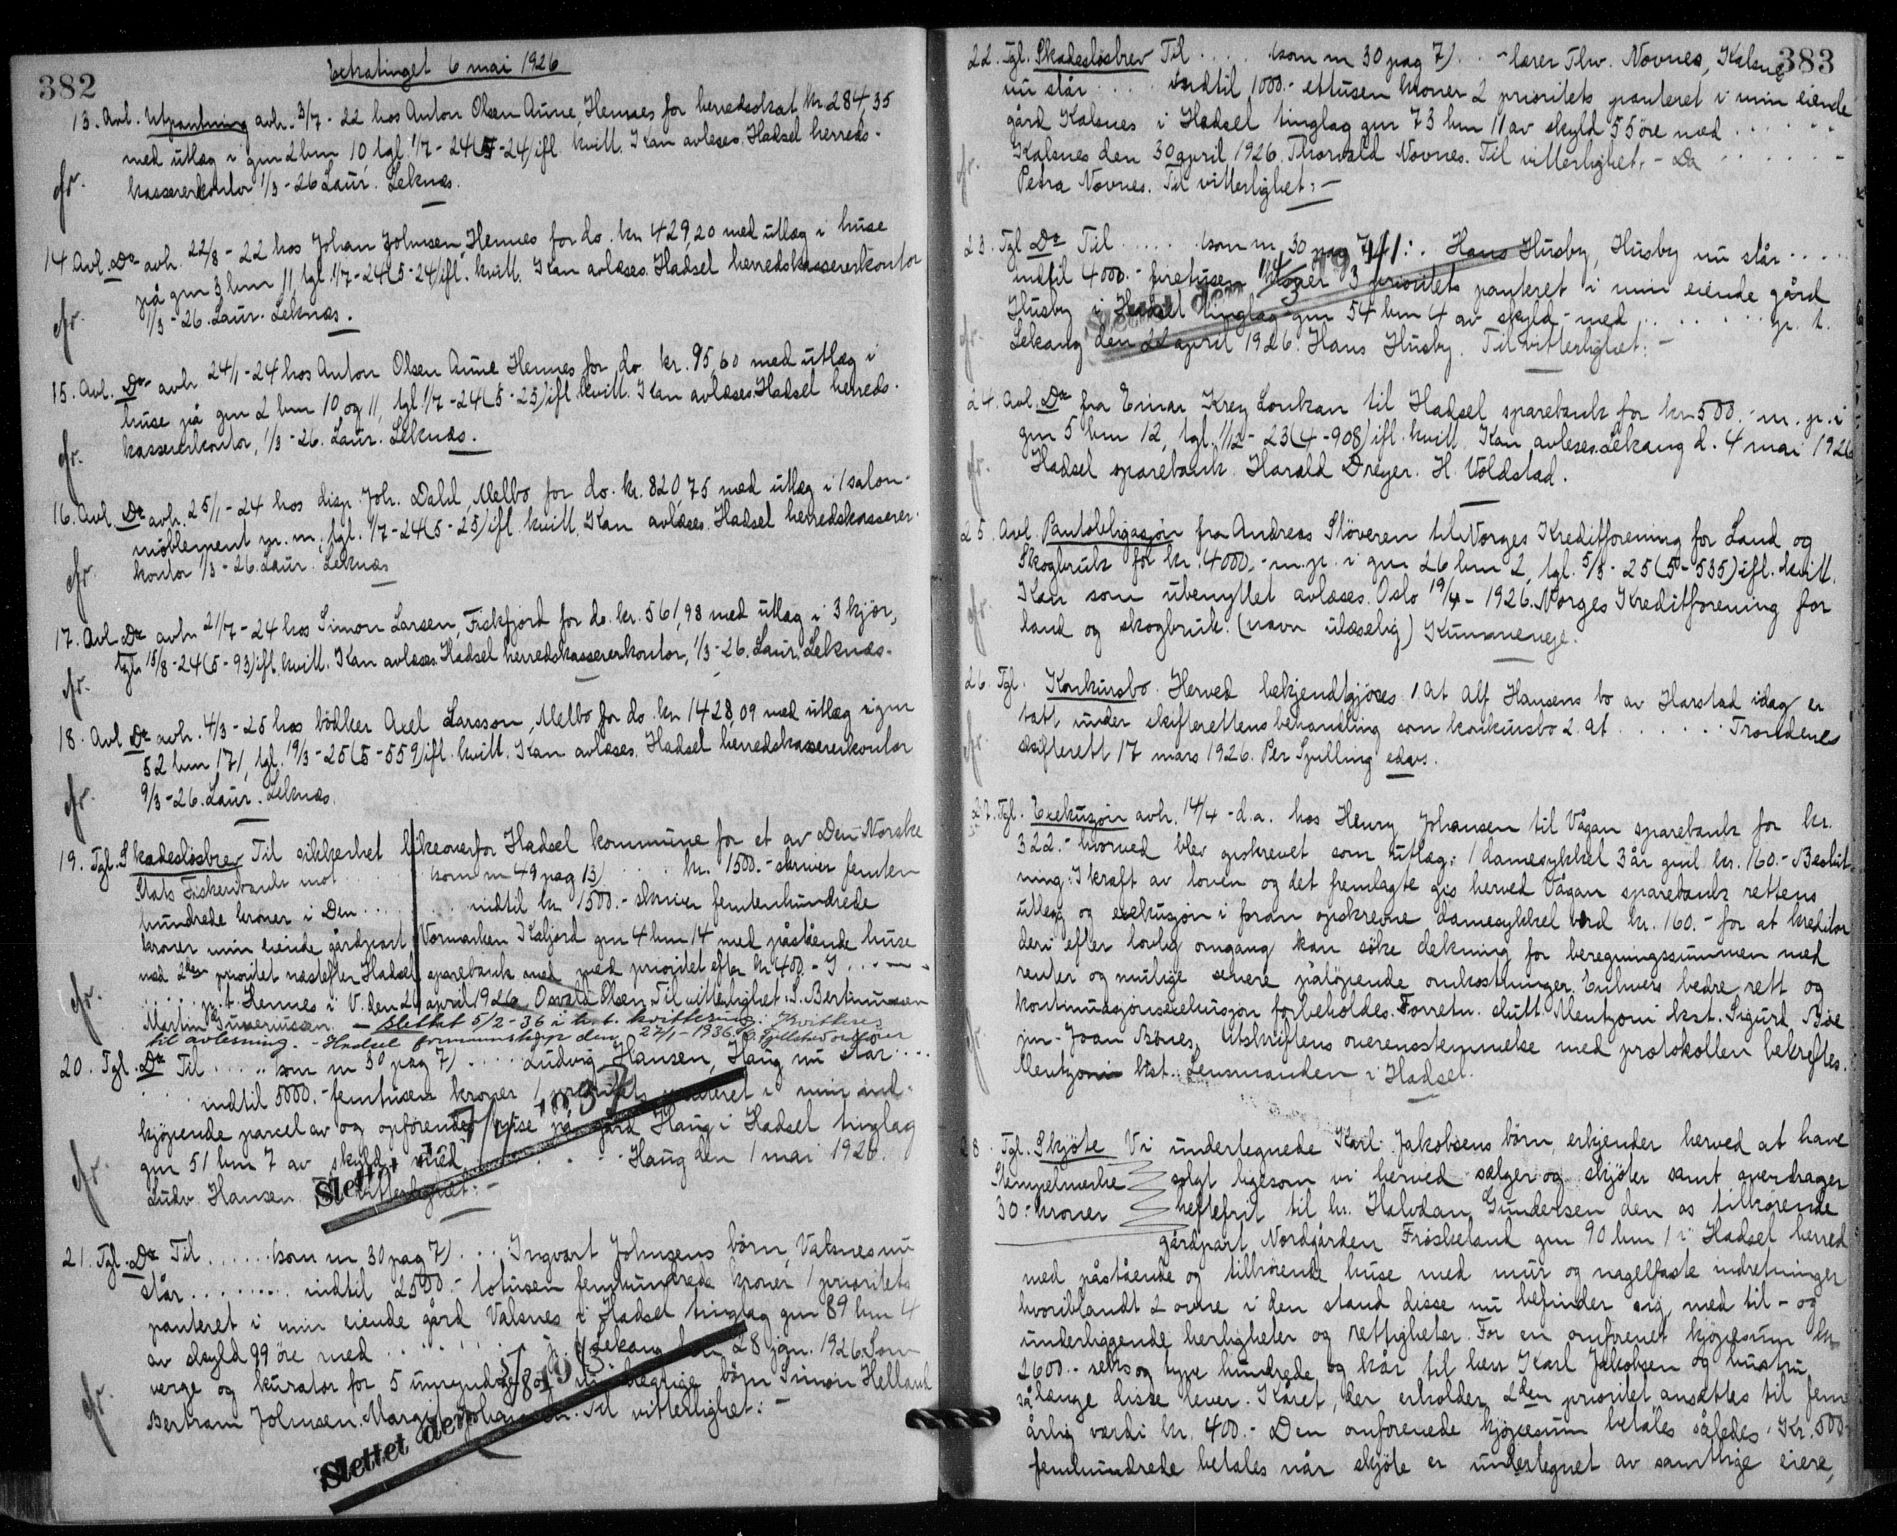 382
Extratinget 6 mai 1926
13. Avl. Utpantning avh. 3/7 - 22 hos Anton Olsen Aune, Hennes for herredsskat kr. 284,35
med utlæg i gnr 2 bnr 10, tgl. 1/7 - 24 (5 - 24) ifl. kvitt. Kan avlæses. Hadsel herreds-
kassererkontor 1/3 - 26. Laur. Leknæs.
14. Avl. Do avh. 22/8 - 22 hos Johan Johnsen, Hennes for do. kr. 429,20 med utlæg i huse
på gnr 3 bnr 11 tgl. 1/7 - 24 (5 - 24) ifl. kvitt. Kan avlæses. Hadsel herredskassererkontor
1/3 - 26. Laur. Leknæs.
15. Avl. Do avh. 24/1 - 24 hos Anton Olsen Aune Hennes for do kr. 95,60 med utlæg i
huse på gnr 2 bnr 10 og 11, tgl. 1/7 - 24 (5 - 25) ifl. kvitt. Kan avlæses. Hadsel herreds-
kassererkontor, 1/3 - 26. Laur. Leknæs.
16. Avl. Do avh. 25/1 - 24 hos disp. Joh. Dahl, Melbo for do. kr. 820,75 med utlæg i 1 salon-
møblement m. m. tgl. 1/7 - 24 (5 - 25) ifl. kvitt. Kan avlæses. Hadsel herredskasserer-
kontor 1/3 - 26. Laur. Leknæs
17. Avl. Do avh. 21/7 - 24 hos Simon Larsen, Fiskfjord for do. kr. 561,98 med utlæg i 3 kjør,
tgl. 15/8 - 24 (5 - 93) ifl. kvitt. Kan avlæses. Hadsel herredskassererkontor, 1/3 - 26. Laur. Leknæs.
18. Avl. Do avh. 4/3 - 25 hos bødker Axel Larsson, Melbo for do. kr. 1428,09 med utlæg i gnr
52 bnr 171, tgl. 19/3 - 25 (5 - 559) ifl. kvitt. Kan avlæses. Hadsel herredskassererkontor
9/3 - 26. Laur. Leknæs.
19. Tgl. Skadesløsbrev Til sikkerhet likeoverfor Hadsel kommune for et av Den Norske
Stats Fiskeribank mot . . . . (som nr 49 pag 13) . . . . kr. 1500.- skriver femten
hundrede kroner i Den . . . . . . indtil kr. 1500.- skriver femtenhundrede
kroner min eiende gårdpart Vormarken Kaljord gnr 4 bnr 14 med påstående huse
med 2den prioritet næstefter Hadsel sparebank med prioritet efter kr. 400.- I . . . .
. . . . p. t. Hennes i V. den 26 april 1926 Osvald Olsen Til vitterlighet: S. Bertinussen
Martin Gunerussen. - Slettet 5/2-36 i hht. kvittering: Kvitteres
til avlesning. - Hadsel formannskap den 27/1-1936.
20. Tgl. Do Til . . . . . (som nr 30 pag 7) . . . . Ludvig Hansen, Haug nu står . . . .
. . . indtil 5000.- femtusen kroner 1 prioritets panteret i min ind-
kjøpende parcel av og opførende huse på gård Haug i Hadsel tinglag
gnr 51 bnr 7 av skyld med . . . . . . Haug den 1 mai 1926.
Ludv. Hansen. Til vitterlighet: -
Slettet den 7/1 1937
21. Tgl. Do Til . . . . . (som nr 30 pag 7) . . . Ingvart Johnsens børn, Valsnes nu
står . . . . . . indtil 2500.- totusen femhundrede kroner 1 prioritets
panteret i min eiende gård Valsnes i Hadsel tinglag gnr 89 bnr 4
av skyld 99 øre med . . . . . . p. t. Lekang den 28 1926. Som
verge og kurator for 5 umyndige børn Simon Helland
Bertram Johnsen. Margit Johansen. Til vitterlighet: -
Slettet den
383
22. Tgl. Skadesløsbrev Til . . . . (som nr 30 pag 7) . . - lærer Thv. Novnes, Kalsnes
nu står . . . . indtil 1000.- ettusen kroner 2 prioritets panteret i min eiende
gård Kalsnes i Hadsel tinglag gnr 73 bnr 11 av skyld 55 øre med . . . . . .
Kalsnes den 30 april 1926. Thorvald Novnes. Til vitterlighet. - Da . . . . . . -
Petra Novnes. Til vitterlighet: -
23. Tgl. Do Til . . . . . (som nr 30 pag 7) . . Hans Husby, Husby nu står . . . . .
indtil 4000.- firetusen kroner 3 prioritets panteret i min eiende gård
Husby i Hadsel tinglag gnr 54 bnr 4 av skyld - med . . . . . . . p. t.
Lekang den 22 april 1926. Hans Husby. Til vitterlighet: -
Slettet den 1941
24. Avl. Do fra Einar Krey Lonkan til Hadsel sparebank for kr. 500.- m. p. i
gnr 5 bnr 12, tgl. 1/12 - 23 (4 - 908) ifl. kvitt. Kan avleses. Lekang d. 4 mai 1926
Hadsel sparebank. Harald Dreyer. H. Voldstad.
25. Avl. Pantobligasjon fra Andreas Støveren til Norges Kreditforening for Land og
Skogbruk for kr. 4000.- m. p. i gnr 26 bnr 2, tgl. 5/3 - 25 (5 - 535) ifl. kvitt.
Kan som ubenyttet avlæses. Oslo 19/4 - 1926. Norges Kreditforening for
land og skogbruk. (navn ulæselig) Kummeneje.
26. Tgl. Konkursbo. Herved bekjendtgjøres 1. At Alf Hansens bo av Harstad idag er
tatt under skifterettens behandling som konkursbo 2. at . . . . . . Trondenes
skifterett 17 mars 1926. Per Spilling edars.
27. Tgl. Exekusjon avh. 14/4 - d.a. hos Henry Johansen til Vågan sparebank for kr.
322.- hvorved blev opskrevet som utlæg: 1 damesykkel 3 år gml. kr. 160.- Beslut-
ning: I kraft av loven og det fremlagte gis herved Vågan sparebank rettens
utlæg og exekusjon i foran opskrevne damesykkel værd kr. 160.- for at kreditor
deri efter lovlig omgang kan søke dekning for beregningssummen med
renter og mulige senere påløpende omkostninger. Enhvers bedre rett og
kontinuasjonsexekusjon forbeholdes. Forretn. slutt. Mentzoni kst. Sigurd Bøe
jun. - Joan Bønes. Utskriftens overensstemmelse med protokollen bekreftes.
Mentzoni kst. Lensmanden i Hadsel.
28. Tgl. Skjøte Vi undertegnede Karl Jakobsens børn, erkjender herved at have
Stempelmerke solgt ligesom vi herved sælger og skjøter samt overdrager
30.- kroner heftefrit til hr. Halvdan Gundersen den os tilhørende
gårdpart Nordgården Frøskeland gnr 90 bnr 1 i Hadsel herred
med påstående og tilhørende huse med mur og nagelfaste indretninger
hvoriblandt 2 ovne i den stand disse nu befinder sig, med til - og
underliggende herligheter og rettigheter. For en omforenet kjøpesum kr.
2600.- seks og tyve hundrede og kår til hr. Karl Jakobsen og hustru
så længe disse lever. Kåret, der erholder 2den prioritet ansættes til fem
årlig værdi kr. 400.- Den omforenede kjøpesum betales således: Kr. 500.-
femhundrede betales når skjøte er undertegnet av samtlige eiere,